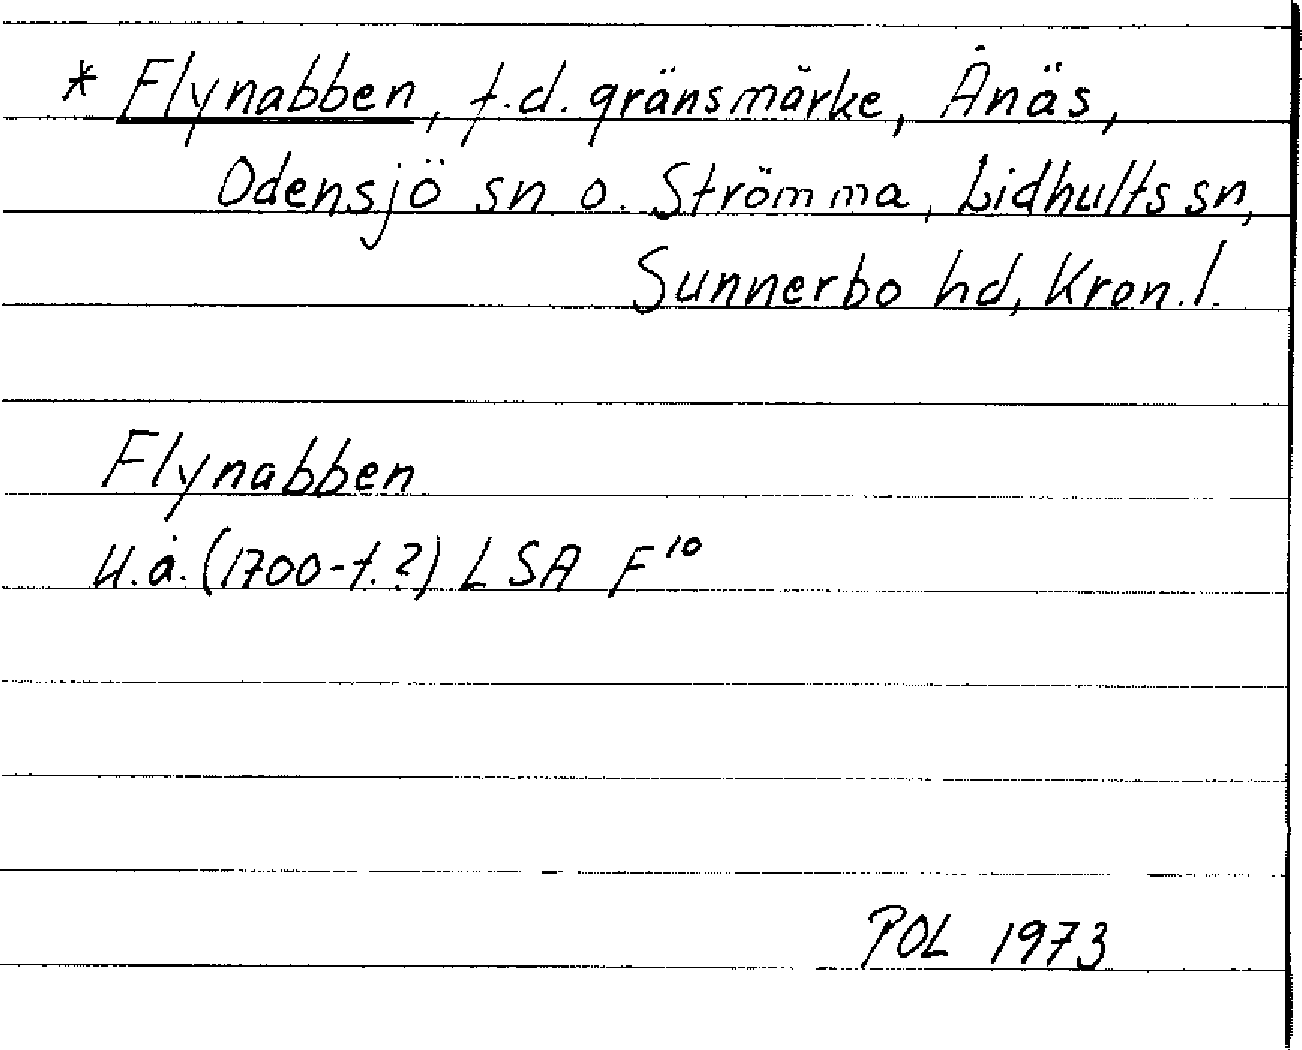 * Flynabben, f.d. gränsmärke, Ånäs,
Odensjö sn o. Strömma, Lidhults sn,
Sunnerbo hd, Kron. l.
Flynabben
u.å. (1700-t.?) LSA F¹⁰
POL 1973